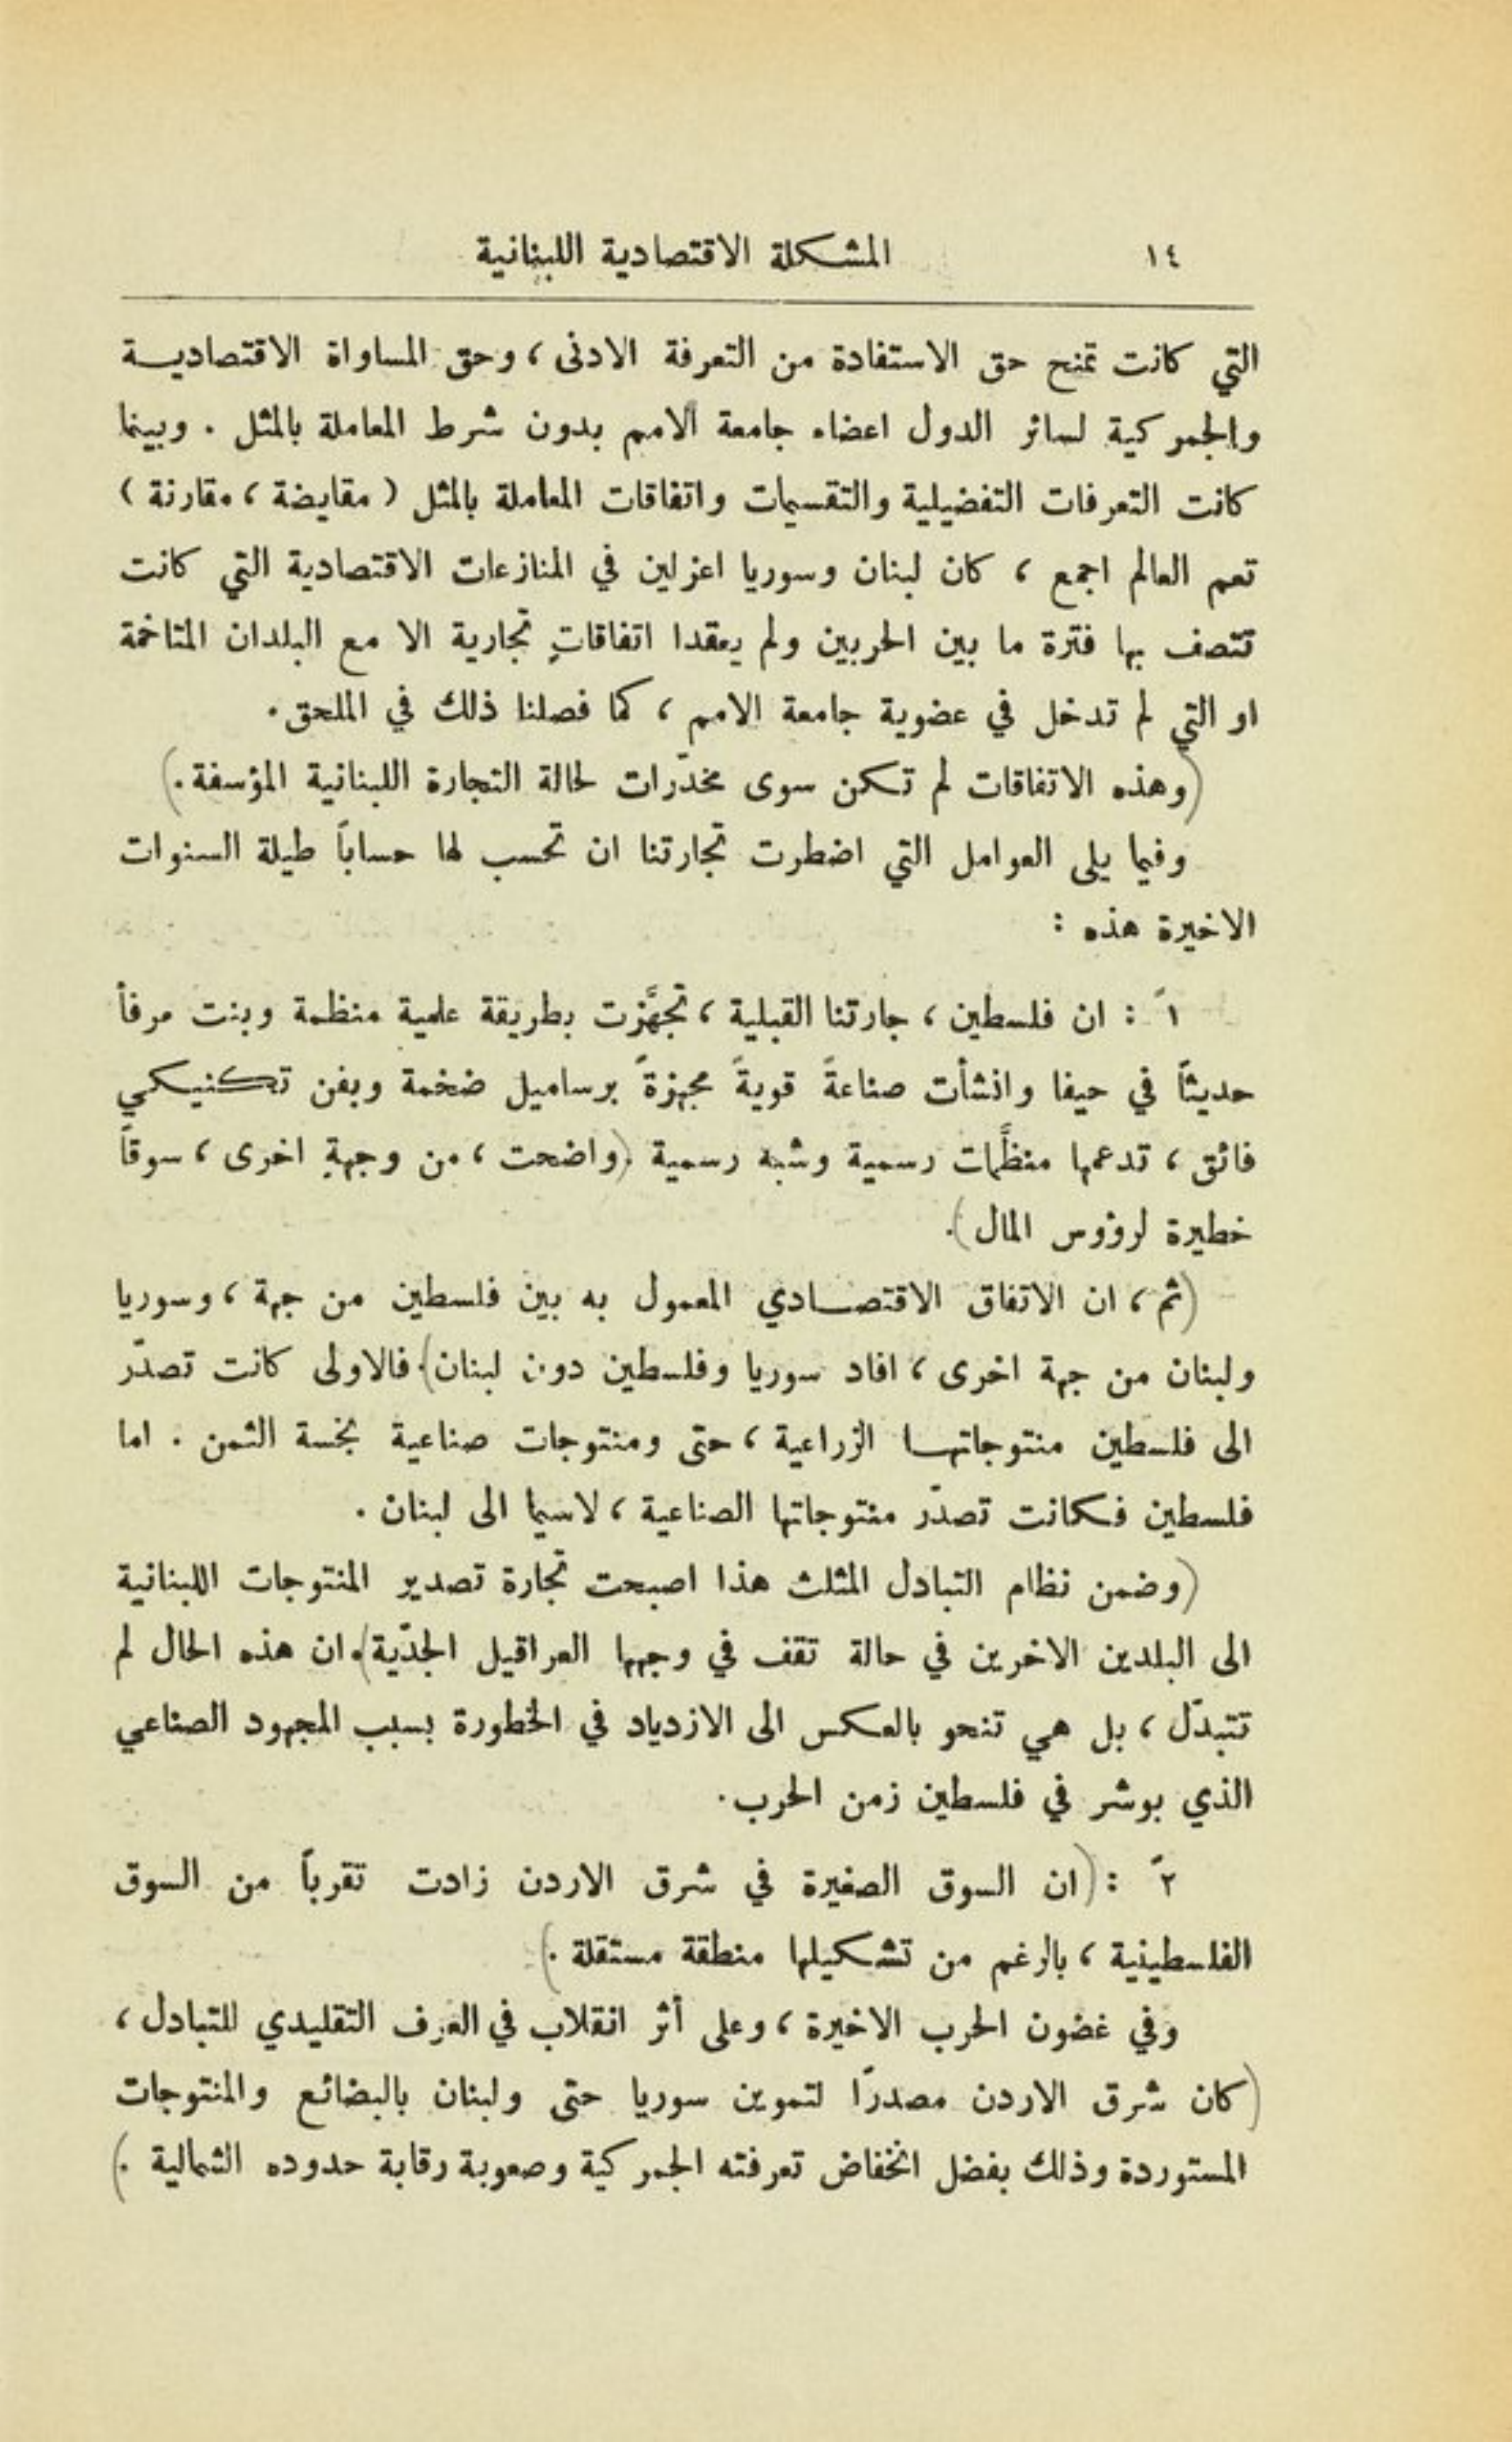 ١٤ المشكلة الاقتصادية اللبنانية
التي كانت تمنح حق الاستفادة من التعرفة الادنى ، وحق المساواة الاقتصاديـة
والجمركية لسائر الدول اعضاء جامعة الامم بدون شرط المعاملة بالمثل . وبينما
كانت التعرفات التفضيلية والتقسيمات واتفاقات المعاملة بالمثل ( مقايضة ، مقارنة )
تعم العالم اجمع ، كان لبنان وسوريا اعزلين في المنازعات الاقتصادية التي كانت
تتصف بها فترة ما بين الحربين ولم يعقدا اتفاقاتٍ تجارية الا مع البلدان المتاخمة
او التي لم تدخل في عضوية جامعة الامم ، كما فصلنا ذلك في الملحق .
(وهذه الاتفاقات لم تكن سوى مخدّرات لحالة التجارة اللبنانية المؤسفة .)
وفيما يلي العوامل التي اضطرت تجارتنا ان تحسب لها حساباً طيلة السنوات
الاخيرة هذه :
١ً : ان فلسطين ، جارتنا القبلية ، تجهَّزت بطريقة علمية منظمة وبنت مرفأ
حديثاً في حيفا وانشأت صناعةً قويةً مجهزةً برساميل ضخمة وبفن تكنيكي
فائق ، تدعمها منظَّمات رسمية وشبه رسمية .(واضحت ، من وجهةٍ اخرى ، سوقاً
خطيرة لرؤوس المال ).
(ثم ، ان الاتفاق الاقتصـادي المعمول به بين فلسطين من جهة ، وسوريا
ولبنان من جهة اخرى ، افاد سوريا وفلسطين دون لبنان). فالاولى كانت تصدّر
الى فلسطين منتوجاتهـا الزراعية ، حتى ومنتوجات صناعية بخسة الثمن . اما
فلسطين فكانت تصدّر منتوجاتها الصناعية ، لاسيما الى لبنان .
(وضمن نظام التبادل المثلث هذا اصبحت تجارة تصدير المنتوجات اللبنانية
الى البلدين الاخرين في حالة تقف في وجهها العراقيل الجدّية). ان هذه الحال لم
تتبدّل ، بل هي تنحو بالعكس الى الازدياد في الخطورة بسبب المجهود الصناعي
الذي بوشر في فلسطين زمن الحرب .
٢ً : (ان السوق الصغيرة في شرق الاردن زادت تقرباً من السوق
الفلسطينية ، بالرغم من تشكيلها منطقة مستقلة .)
وفي غضون الحرب الاخيرة ، وعلى أثر انقلاب في العرف التقليدي للتبادل ،
(كان شرق الاردن مصدرًا لتموين سوريا حتى ولبنان بالبضائع والمنتوجات
المستوردة وذلك بفضل انخفاض تعرفته الجمركية وصعوبة رقابة حدوده الشمالية .)